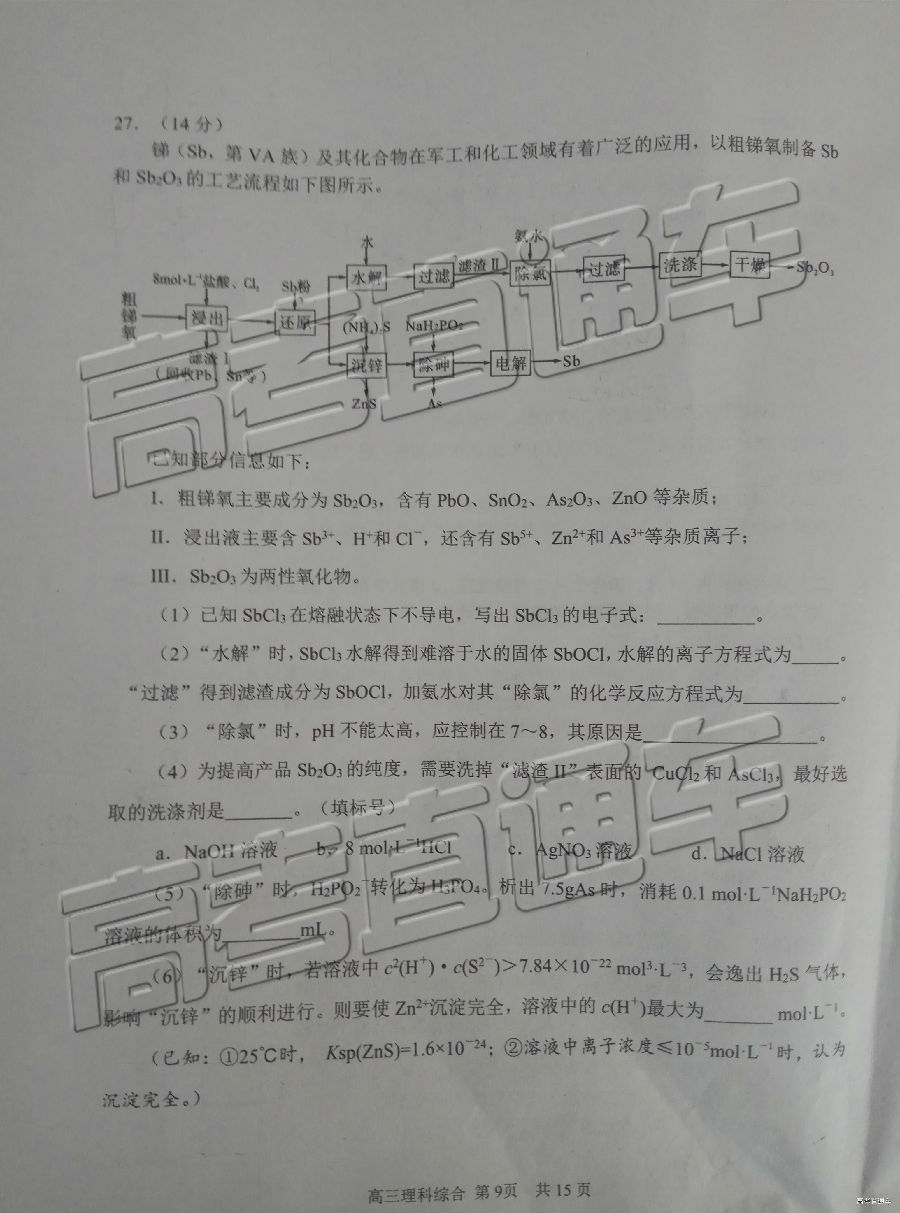 27．（14 分）
锑（Sb，第 VA 族）及其化合物在军工和化工领域有着广泛的应用，以粗锑氧制备 Sb
和 Sb₂O₃ 的工艺流程如下图所示。
水
氨水
8mol·L⁻¹盐酸、Cl₂
Sb粉
水解
过滤
滤渣 II
除氯
过滤
洗涤
干燥
Sb₂O₃
粗锑氧
浸出
还原
(NH₄)₂S
NaH₂PO₂
滤渣 I
（回收Pb、Sn等）
沉锌
除砷
电解
Sb
ZnS
As
已知部分信息如下：
I．粗锑氧主要成分为 Sb₂O₃，含有 PbO、SnO₂、As₂O₃、ZnO 等杂质；
II．浸出液主要含 Sb³⁺、H⁺和 Cl⁻，还含有 Sb⁵⁺、Zn²⁺和 As³⁺等杂质离子；
III．Sb₂O₃ 为两性氧化物。
（1）已知 SbCl₃ 在熔融状态下不导电，写出 SbCl₃ 的电子式：__________。
（2）“水解”时，SbCl₃ 水解得到难溶于水的固体 SbOCl，水解的离子方程式为_____。
“过滤”得到滤渣成分为 SbOCl，加氨水对其“除氯”的化学反应方程式为__________。
（3）“除氯”时，pH 不能太高，应控制在 7～8，其原因是__________________。
（4）为提高产品 Sb₂O₃ 的纯度，需要洗掉“滤渣 II”表面的 CuCl₂ 和 AsCl₃，最好选
取的洗涤剂是_______。（填标号）
a．NaOH 溶液 b．8 mol·L⁻¹HCl c．AgNO₃ 溶液 d．NaCl 溶液
（5）“除砷”时，H₂PO₂⁻转化为 H₃PO₄。析出 7.5gAs 时，消耗 0.1 mol·L⁻¹NaH₂PO₂
溶液的体积为________mL。
（6）“沉锌”时，若溶液中 c²(H⁺)·c(S²⁻)＞7.84×10⁻²² mol³·L⁻³，会逸出 H₂S 气体，
影响“沉锌”的顺利进行。则要使 Zn²⁺沉淀完全，溶液中的 c(H⁺)最大为_______ mol·L⁻¹。
（已知：①25℃时， Ksp(ZnS)=1.6×10⁻²⁴；②溶液中离子浓度≤10⁻⁵mol·L⁻¹时，认为
沉淀完全。）
高三理科综合 第 9页 共 15 页
高考直通车
高考直通车
高考直通车